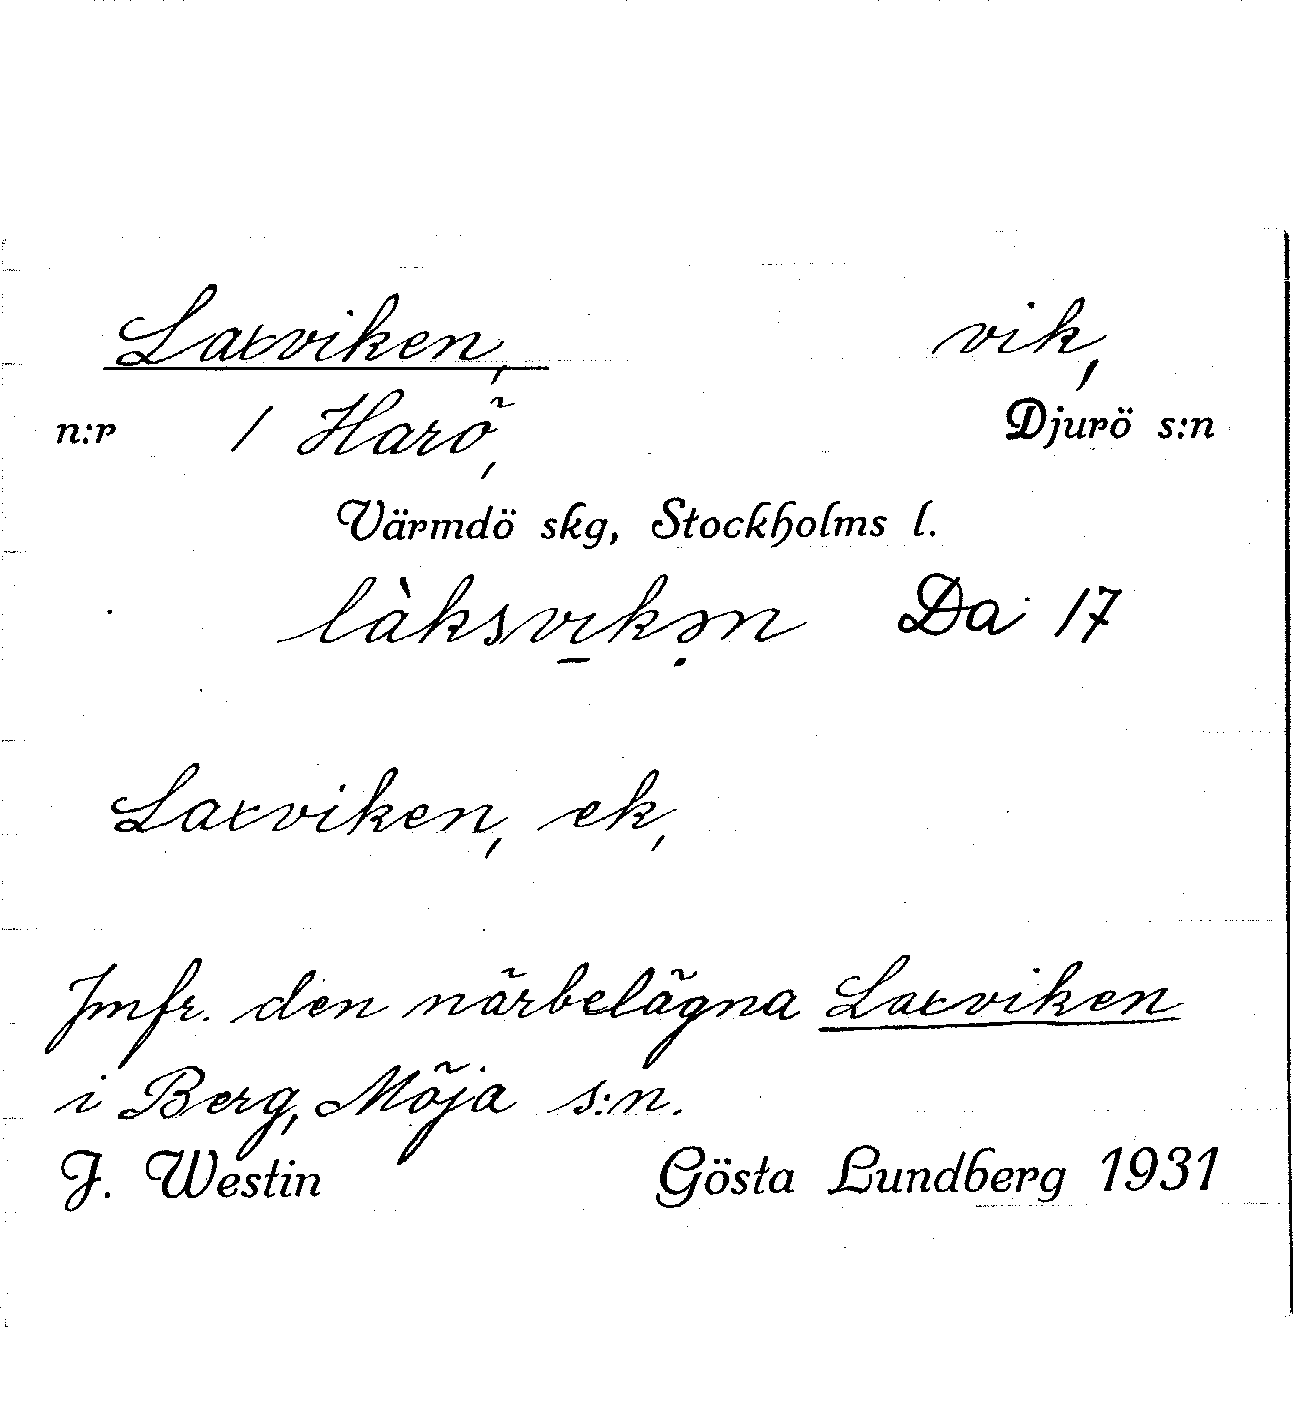 Laxviken, vik,
n:r 1 Harö, Djurö s:n
Värmdö skg, Stockholms l.
làksvı̱kə̣n Da 17
Laxviken, ek,
Jmfr. den närbelägna Laxviken
i Berg, Möja s:n.
J. Westin Gösta Lundberg 1931